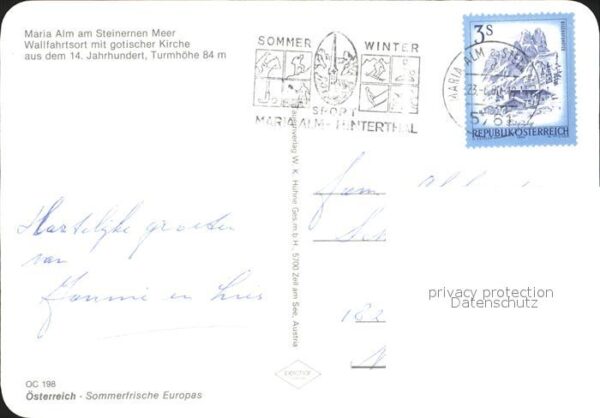 Maria Alm am Steinernen Meer
Wallfahrtsort mit gotischer Kirche
aus dem 14. Jahrhundert, Turmhöhe 84 m
SOMMER WINTER
SPORT
MARIA ALM - HINTERTHAL
3S
MARIA ALM
5761
REPUBLIK ÖSTERREICH
Hartelijke groeten
van
en
fam
privacy protection
Datenschutz
verlag W. K. Huhne Ges.m.b.H., 5700 Zell am See, Austria
OC 198
Österreich - Sommerfrische Europas